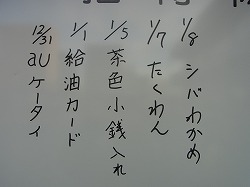 1/8 シバわかめ
1/7 たくわん
1/5 茶色小銭入れ
1/1 給油カード
12/31 aUケータイ